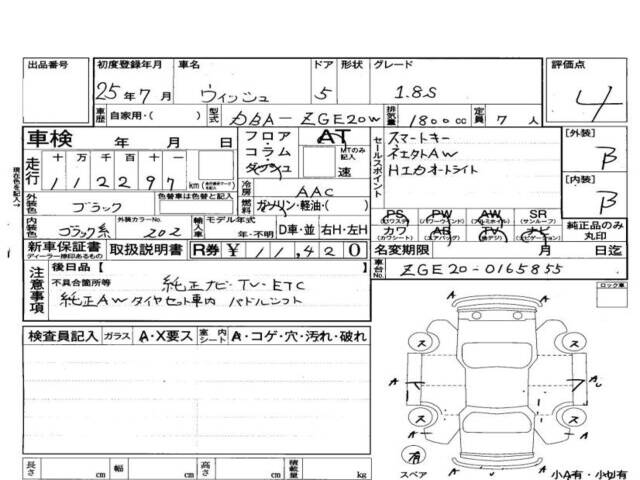 出品番号 初度登録年月 車名 ドア 形状 グレード 評価点
25年7月 ウィッシュ 5 1.8S 4
車歴 自家用・( ) 型式 DBA-ZGE20W 排気量 1800cc 定員 7人
車検 年 月 日 フロア・コラム・ダッシュ AT MTのみ記入 速 セールスポイント スマートキー [外装]
走行 十万千百十 112297 km 社外AW B
HIDオートライト
冷房 AAC [内装]
外装色 ブラック 色替車は色替と記入 燃料 ガソリン・軽油・( ) B
PS (パワステ) PW (パワーウィンドウ) AW (アルミホイル) SR (サンルーフ)
内装色 ブラック系 外装カラーNo. 202 輸入車 モデル年式 年・不明 D車・並 右H・左H カワ (カワシート) AB (エアバッグ) TV ナビ (ナビゲーション) 純正品のみ丸印
新車保証書 ディーラー捺印あるもの 取扱説明書 R券 ¥11,420 名変期限 月 日迄
注意事項 後日品【 】 車台No. ZGE20-0165855
不具合箇所等 純正ナビ・TV・ETC ロック車
純正AWタイヤセット車内 パドルシフト
検査員記入 ガラス A・X要ス 室内シート A・コゲ・穴・汚れ・破れ
ス ス
A A
ス ス
有
スペア
長さ cm 幅 cm 高さ cm 積載量 kg 小A有・小U有
現在色を記入→